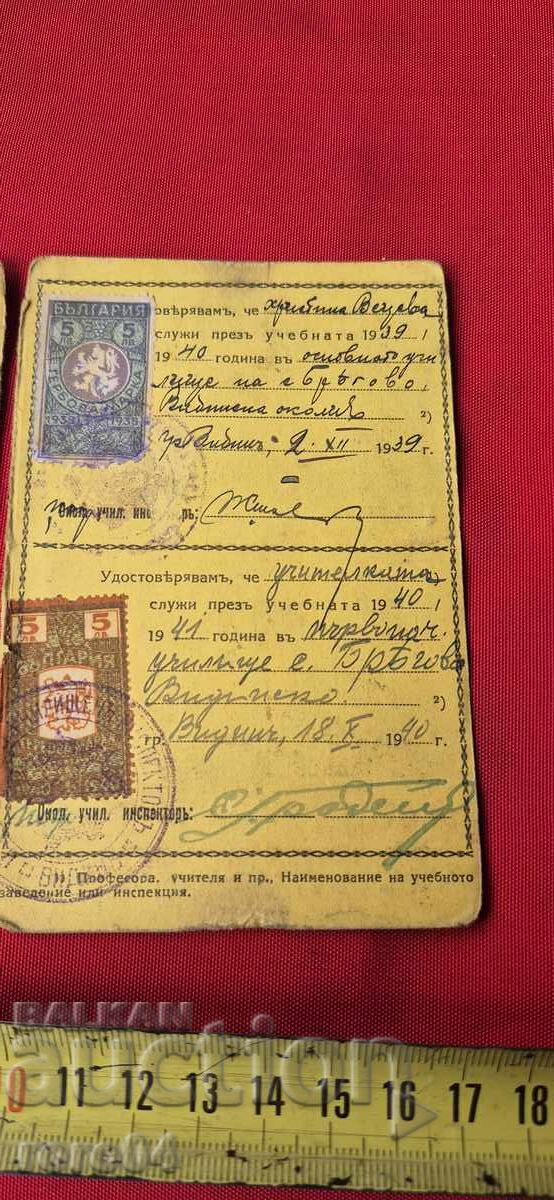 БЪЛГАРИЯ
5 5
ЛВ. ЛВ.
ГЕРБОВА МАРКА
1938 1938
овѣрявамъ, че Христина Вецова
служи презъ учебната 1939/
1940 година въ основното учи
лище на с. Брѣгово,
Видинска околия 2)
гр. Видинъ, 2. XII 1939 г.
Окол. учил. инспекторъ:
Удостовѣрявамъ, че учителката
служи презъ учебната 1940/
1941 година въ първонач.
училище с. Брѣгово
Видинско 2)
гр. Видинъ, 18. X 1940 г.
5 5
ЛВ ЛВ
Окол. учил. инспекторъ:
1) Професора, учителя и пр., Наименование на учебното
заведение или инспекция.
BALKAN
auction
rore04
0 11 12 13 14 15 16 17 18